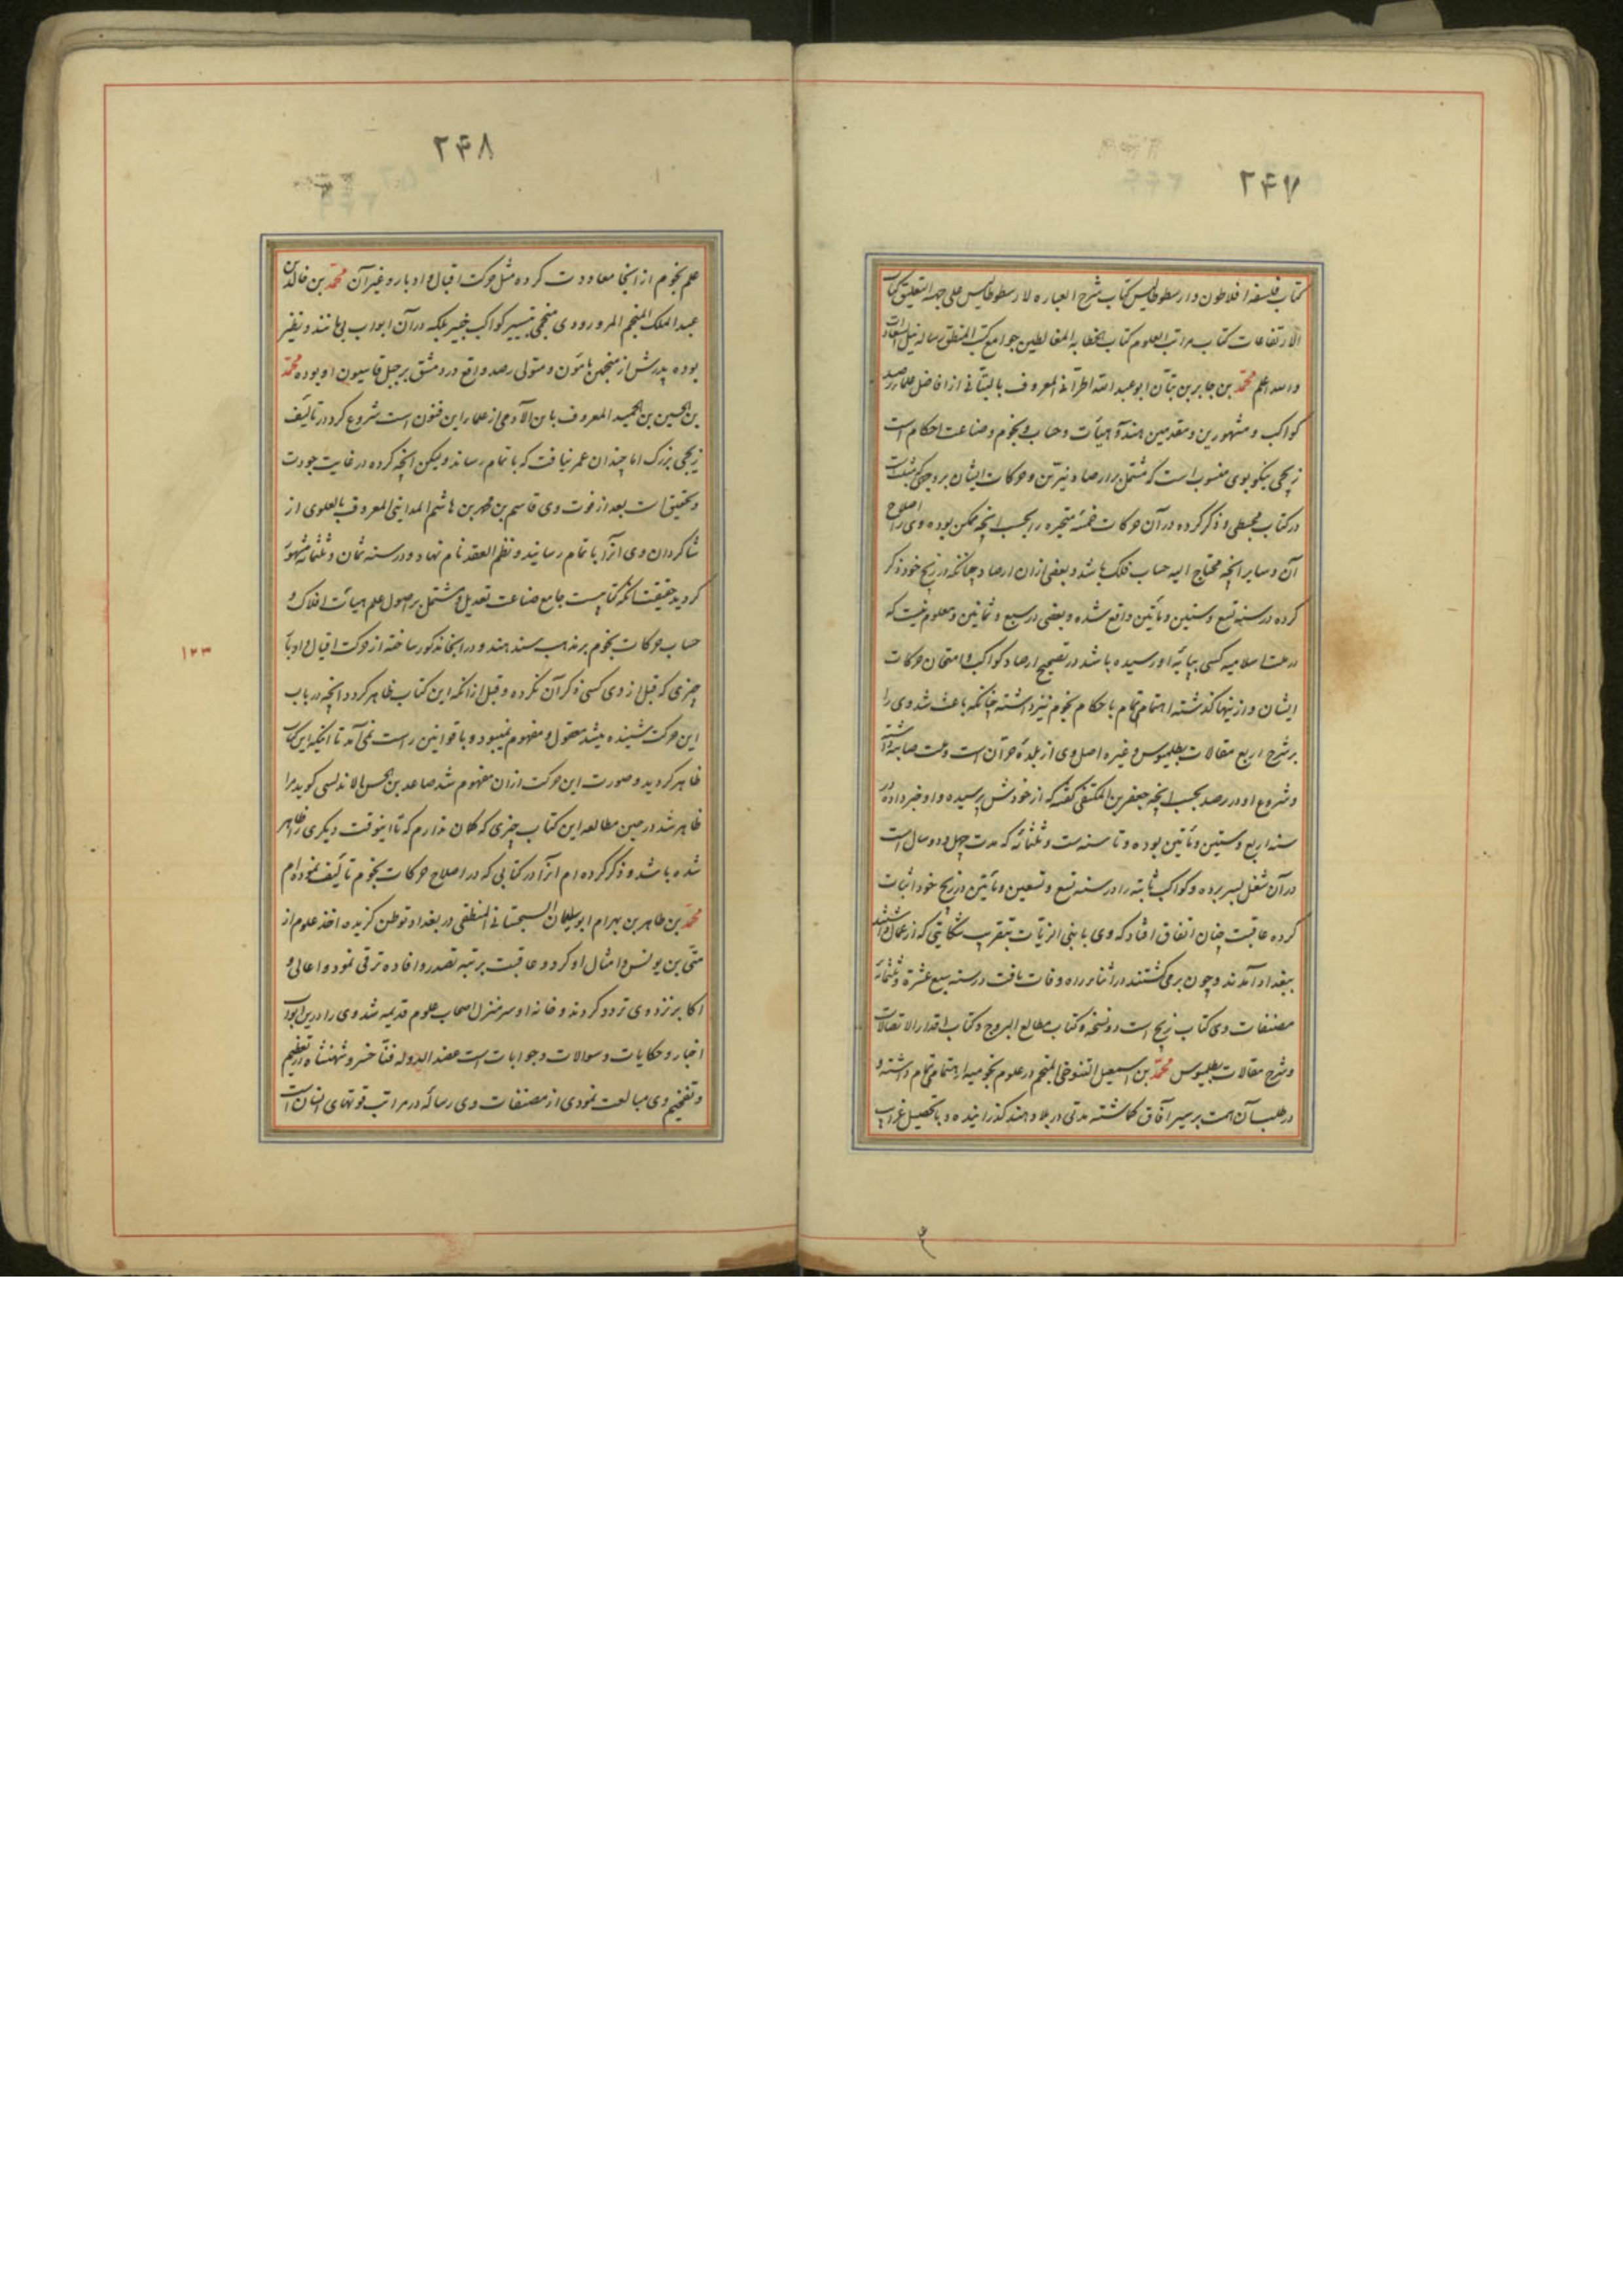 ۲۴۷
کتاب فلسفه افلاطون و ارسطوطالیس کتاب شرح العباره لارسطوطالیس علی جهه التعلیق کتاب
الارتفاعات کتاب مراتب العلوم کتاب الخطابه المغالطین جوامع کتب المنطق رساله نیل السعادات
والله اعلم محمد بن جابر بن سنان ابوعبدالله الحرانی المعروف بالبتانی از افاضل علمای رصد
کواکب و مشهورین و متقدمین هندسه و هیأت و حساب و نجوم و صناعت احکام است
زیجی نیکو بوی منسوب است که مشتمل بر ارصاد نیرین و حرکات ایشان بر وجهی که مثبت است
در کتاب مجسطی و ذکر کرده در آن حرکات خمسه متحیره را بحسب انچه ممکن بوده وی را اصلاح
آن و سایر انچه محتاج الیه حساب فلک باشد و بعضی از ان ارصاد چنانکه در زیج خود ذکر
کرده در سنه تسع و ستین و مأتین واقع شده و بعضی در سبع و ثمانین و معلوم نیست که
در ملت اسلامیه کسی بپایه او رسیده باشد در تصحیح ارصاد کواکب و امتحان حرکات
ایشان و از ینها گذشته اهتمام تمام باحکام نجوم نیز داشته چنانکه باعث شد وی را
بر شرح اربع مقالات بطلمیوس و غیره اصل وی از بلده حران است و ملت صابئه داشته
و شروع او در رصد بحسب انچه جعفر بن المکتفی گفته که از خودش پرسیده و او خبر داده در
سنه اربع و ستین و مأتین بوده و تا سنه ست و ثلثمائه که مدت چهل و دو سال است
در آن شغل بسر برده و کواکب ثابته را در سنه تسع و تسعین و مأتین در زیج خود اثبات
کرده عاقبت چنان اتفاق افتاد که وی با بنی الزیات بتقریب شکایتی که از عمال داشتند
ببغداد آمدند و چون برمی گشتند در اثناء راه وفات یافت در سنه سبع عشرة و ثلثمائه
مصنفات وی کتاب زیج است دو نسخه و کتاب مطالع البروج و کتاب اقدار الاتصالات
و شرح مقالات بطلمیوس محمد بن اسمعیل التنوخی المنجم در علوم نجومیه اهتمامی تمام داشته و
در طلب آن همت بر سیر آفاق گماشته مدتی در بلاد هند گذرانیده و با تحصیل غرایب
۲۴۸
علم نجوم از انجا معاودت کرده مثل حرکت اقبال و ادبار و غیر آن محمد بن خالد بن
عبدالملک المنجم المرورودی منجمی بتسییر کواکب خبیر بلکه در آن ابواب بی مانند و نظیر
بوده پدرش از منجمین مامون و متولی رصد واقع در دمشق بر جبل قاسیون او بوده محمد
بن الحسین بن الحمید المعروف بابن الآدمی از علماء این فنون است شروع کرد در تألیف
زیجی بزرگ اما چندان عمر نیافت که باتمام رساند ولیکن انچه کرده در غایت جودت
و تحقیق است بعد از فوت وی قاسم بن محمد بن هاشم المداینی المعروف بالعلوی از
شاکردان وی آنرا باتمام رسانید و نظم العقد نام نهاد و در سنه ثمان و ثلثمائه مشهور
کردید حقیقت آنکه کتابیست جامع صناعت تعدیل و مشتمل بر اصول علم هیأت افلاک و
حساب حرکات نجوم بر مذهب سند هند و در انجا مذکور ساخته از حرکت اقبال و ادبار
چیزی که قبل از وی کسی ذکر آن نکرده و قبل از انکه این کتاب ظاهر کردد انچه در باب
این حرکت شنیده میشد معقول و مفهوم نمیبود و با قوانین راست نمی آمد تا انیکه این کتاب
ظاهر کردید و صورت این حرکت از ان مفهوم شد صاعد بن الحسن الاندلسی کوید مرا
ظاهر شد در حین مطالعه این کتاب چیزی که گمان ندارم که تا اینوقت دیگری را ظاهر
شده باشد و ذکر کرده ام آنرا در کتابی که در اصلاح حرکات نجوم تألیف نموده ام
محمد بن طاهر بن بهرام ابوسلیمان السجستانی المنطقی در بغداد توطن گزیده اخذ علوم از
متی بن یونس و امثال او کرد و عاقبت برتبه تصدر و افاده ترقی نمود و اعالی و
اکابر نزد وی تردد کردند و خانه او سر منزل اصحاب علوم قدیمه شد وی را در این ابواب
اخبار و حکایات و سوالات و جوابات است عضد الدوله فنا خسرو شهنشاه در تعظیم
و تفخیم وی مبالغت نمودی از مصنفات وی رساله در مراتب قوتهای انسان است
۱۲۳